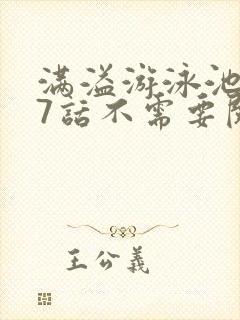 满溢游泳池
7話不需要
王公義